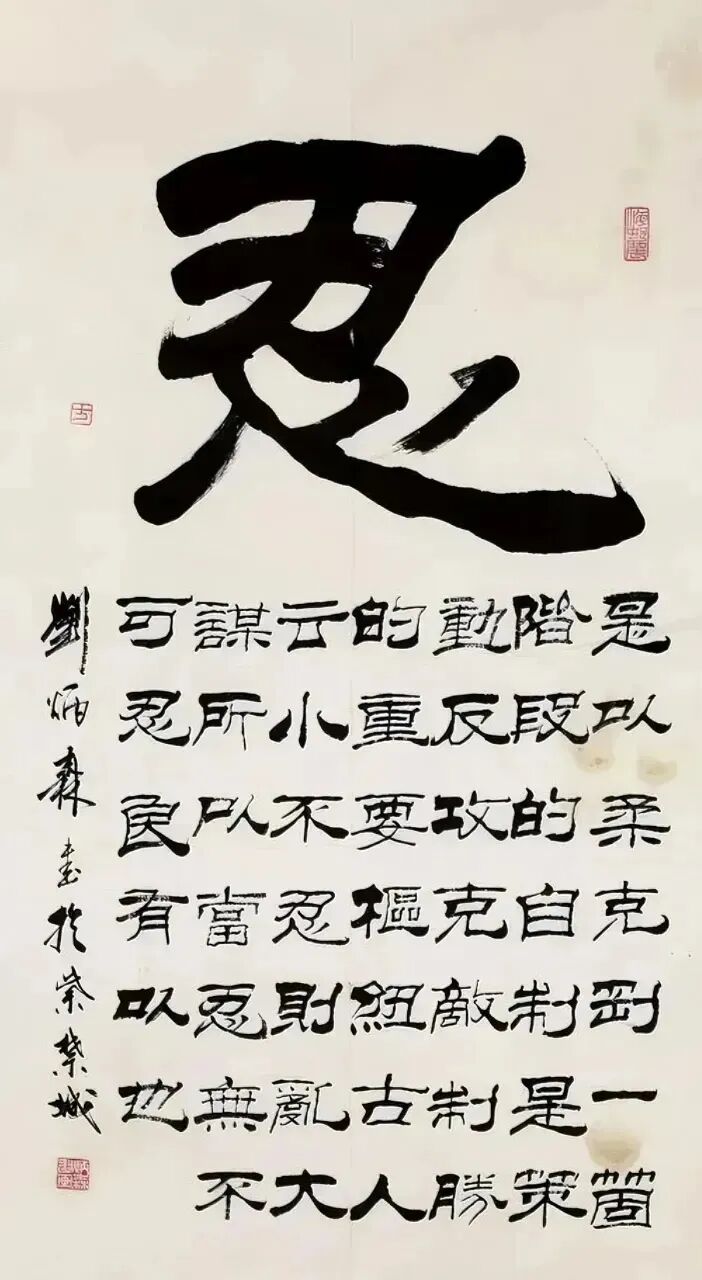 忍
是以柔克剛一箇
階段的自制是策
動反攻克敵制勝
的重要樞紐古人
云小不忍則亂大
謀所以當忍無不
可忍良有以也
劉炳森書於紫禁城